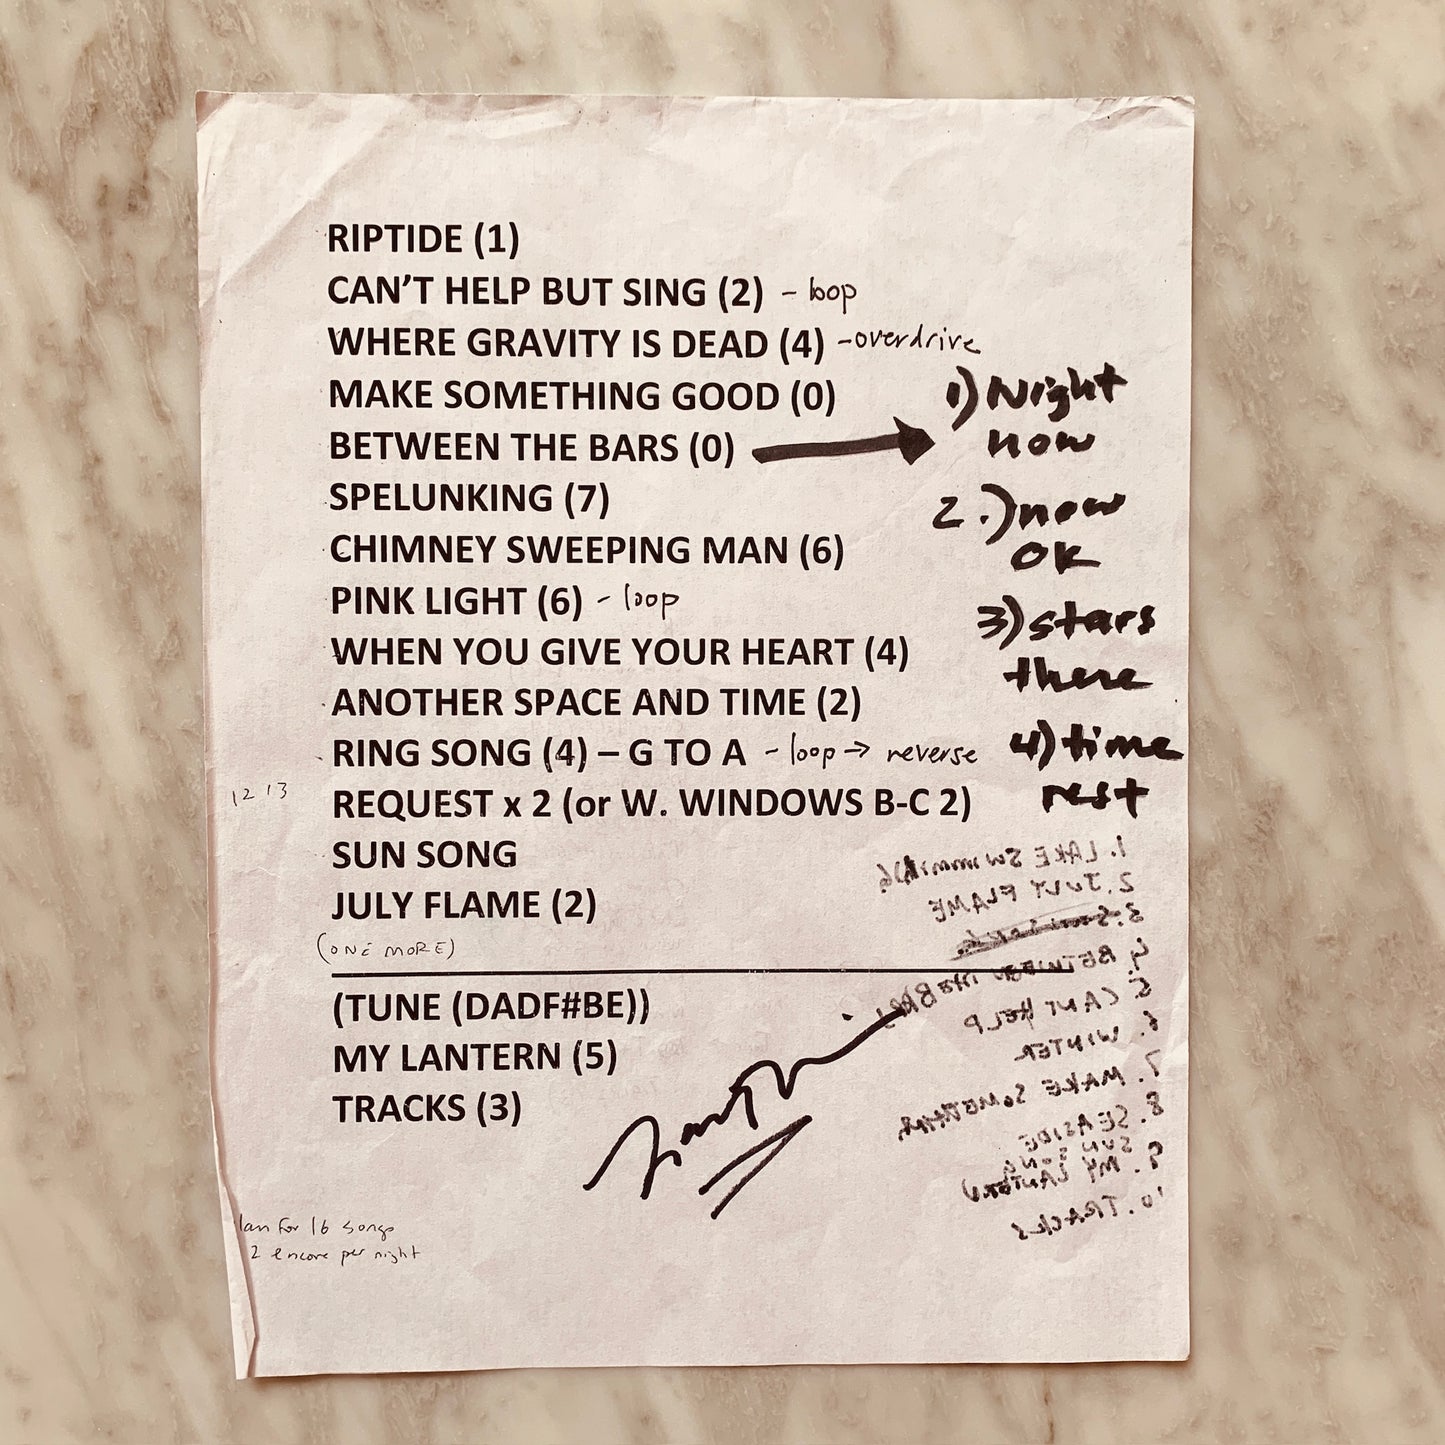 RIPTIDE (1)
CAN'T HELP BUT SING (2) - loop
WHERE GRAVITY IS DEAD (4) - overdrive
MAKE SOMETHING GOOD (0)
BETWEEN THE BARS (0) →
SPELUNKING (7)
CHIMNEY SWEEPING MAN (6)
PINK LIGHT (6) - loop
WHEN YOU GIVE YOUR HEART (4)
ANOTHER SPACE AND TIME (2)
RING SONG (4) – G TO A - loop → reverse
12 13
REQUEST x 2 (or W. WINDOWS B-C 2)
SUN SONG
JULY FLAME (2)
(ONE MORE)
(TUNE (DADF#BE))
MY LANTERN (5)
TRACKS (3)
lan for 16 songs
2 encore per night
1) Night
now
2.) now
OK
3) stars
there
4) time
rest
1. LAKE SWIMMING
2. JULY FLAME
3.
4. BETWEEN THE BARS
5. CANT HELP
6. WINTER
7. MAKE SOMETHING
8. SEASIDE
SUN SONG
9. MY LANTERN
10. TRACKS